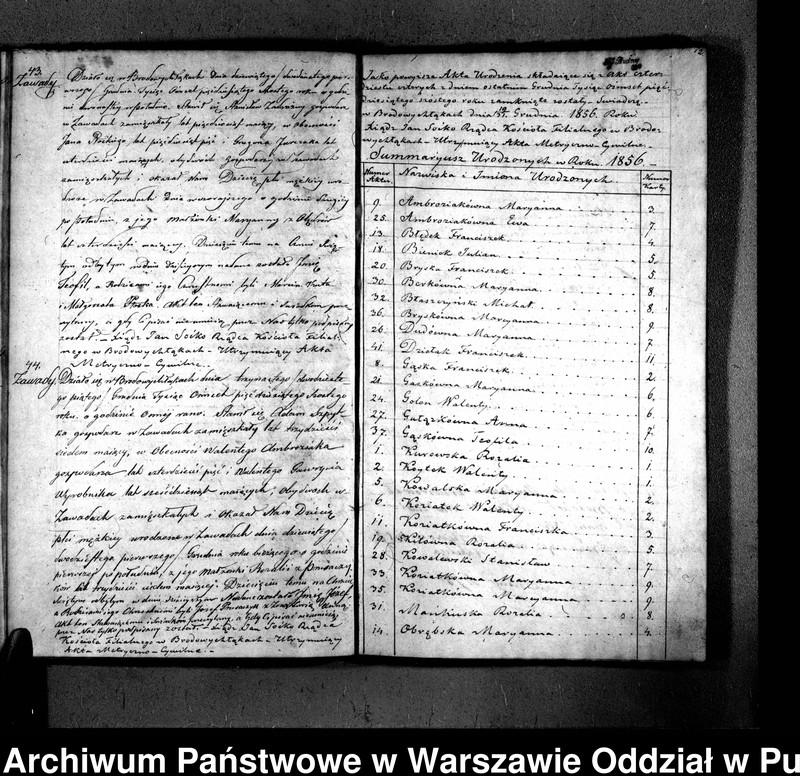 43.
Zawady
Działo się w Brodowychłąkach Dnia dziewiątego/dwudziestego pier-
wszego/Grudnia Tysiąc Ośmset pięćdziesiątego szóstego roku o godzi-
nie Stawił się Stanisław gospodarz
w Zawadach zamieszkały lat mający, w obecności
Jana lat pięćdziesiąt pięć i Grzegorza lat
czterdzieści mających, obydwóch Gospodarzy w Zawadach
zamięszkałych i okazał Nam Dziecię płci męzkiej uro-
dzone w Zawadach Dnia wczorajszego o godzinie
po południu, z jego Małżonki Maryanny z
lat czterdzieści mającej. Dziecięciu temu na Chrzcie Świę-
tym odbytym w dniu dzisiejszym nadane zostało Imię
Teofil, a Rodzicami jego Chrzestnemi byli Marcin
i Małgorzata Akt ten Stawającemu i Świadkom prze-
czytany, a gdy ci pisać nieumieją przez Nas tylko podpisany
został. – Xiądz Jan Soćko Rządca Kościoła Filial-
nego w Brodowychłąkach – Utrzymujący Akta
Metryczno – Cywilne. –
44.
Zawady.
Działo się w Brodowychłąkach dnia trzynastego/dwudzieste-
go piątego/Grudnia Tysiąc Ośmset pięćdziesiątego Szóstego
roku o godzinie Ósmej rano. Stawił się Adam
gospodarz w Zawadach zamięszkały lat trzydzieści
siedem mający, w Obecności Walentego Ambroziaka
gospodarza lat czterdzieści pięć i Walentego
Wyrobnika lat sześćdziesiąt mających, Obydwóch w
Zawadach zamięszkałych i okazał Nam Dziecię
płci męzkiej urodzone w Zawadach dnia dziewiątego/
dwudziestego pierwszego/Grudnia roku bieżącego o godzinie
pierwszej po południu, z jego Małżonki Rozalii z
lat trzydzieści siedem mającej. Dziecięciu temu na Chrzcie
Świętym odbytym w dniu dzisiejszym Nadane zostało Imię Józef,
a Rodzicami jego Chrzestnemi byli Józef
Akt ten Stawającemu i świadkom przeczytany, a Gdy Ci pisać nieumieją
przez Nas tylko podpisany został – Xiądz Jan Soćko Rządca
Kościoła Filialnego w Brodowychłąkach – Utrzymujący
Akta Metryczno – Cywilne. –
12
Jako powyższe Akta Urodzenia składające się z Akt czter-
dziestu czterech z dniem ostatnim Grudnia Tysiąc Ośmset pięć-
dziesiątego szóstego roku zamknięte zostały – Świadczę
w Brodowychłąkach dnia 31. Grudnia 1856. Roku
Xiądz Jan Soćko Rządca Kościoła Filialnego w Brodo-
wychłąkach – Utrzymujący Akta Metryczno – Cywilne. –
Summaryusz Urodzonych w Roku 1856. –
Numer Aktu. Nazwiska i Imiona Urodzonych. Numer Karty.
9. Ambroziakówna Maryanna 3.
25. Ambroziakówna Ewa 7.
13. Błędek Franciszek 4.
18. Bieniek Julian 5.
20. Bryska Franciszek 5.
30. Berkówna Maryanna 8.
32. Błaszczyński Michał 8.
36. Bryskówna Maryanna 9.
26. Dudówna Maryanna 7.
41. Dziełak Franciszek 11.
8. Gąska Franciszek 2.
21. Gackówna Maryanna 6.
24. Golon Walenty 6.
27. Gałązkówna Anna 7.
37. Gąskówna Teofila 10.
1. Kurowska Rozalia 1.
2. Koytek Walenty 1.
5. Kowalska Maryanna 2.
6. Koziatek Walenty 2.
11. Koziatkówna Franciszka 3.
19. Kiłówna Rozalia 5.
28. Kowalewski Stanisław 7.
33. Koziatkówna Maryanna 9.
35. Koziatkówna Maryanna 9.
31. Marchińska Rozalia 8.
14. Obrębska Maryanna 4.
Archiwum Państwowe w Warszawie Oddział w Pu